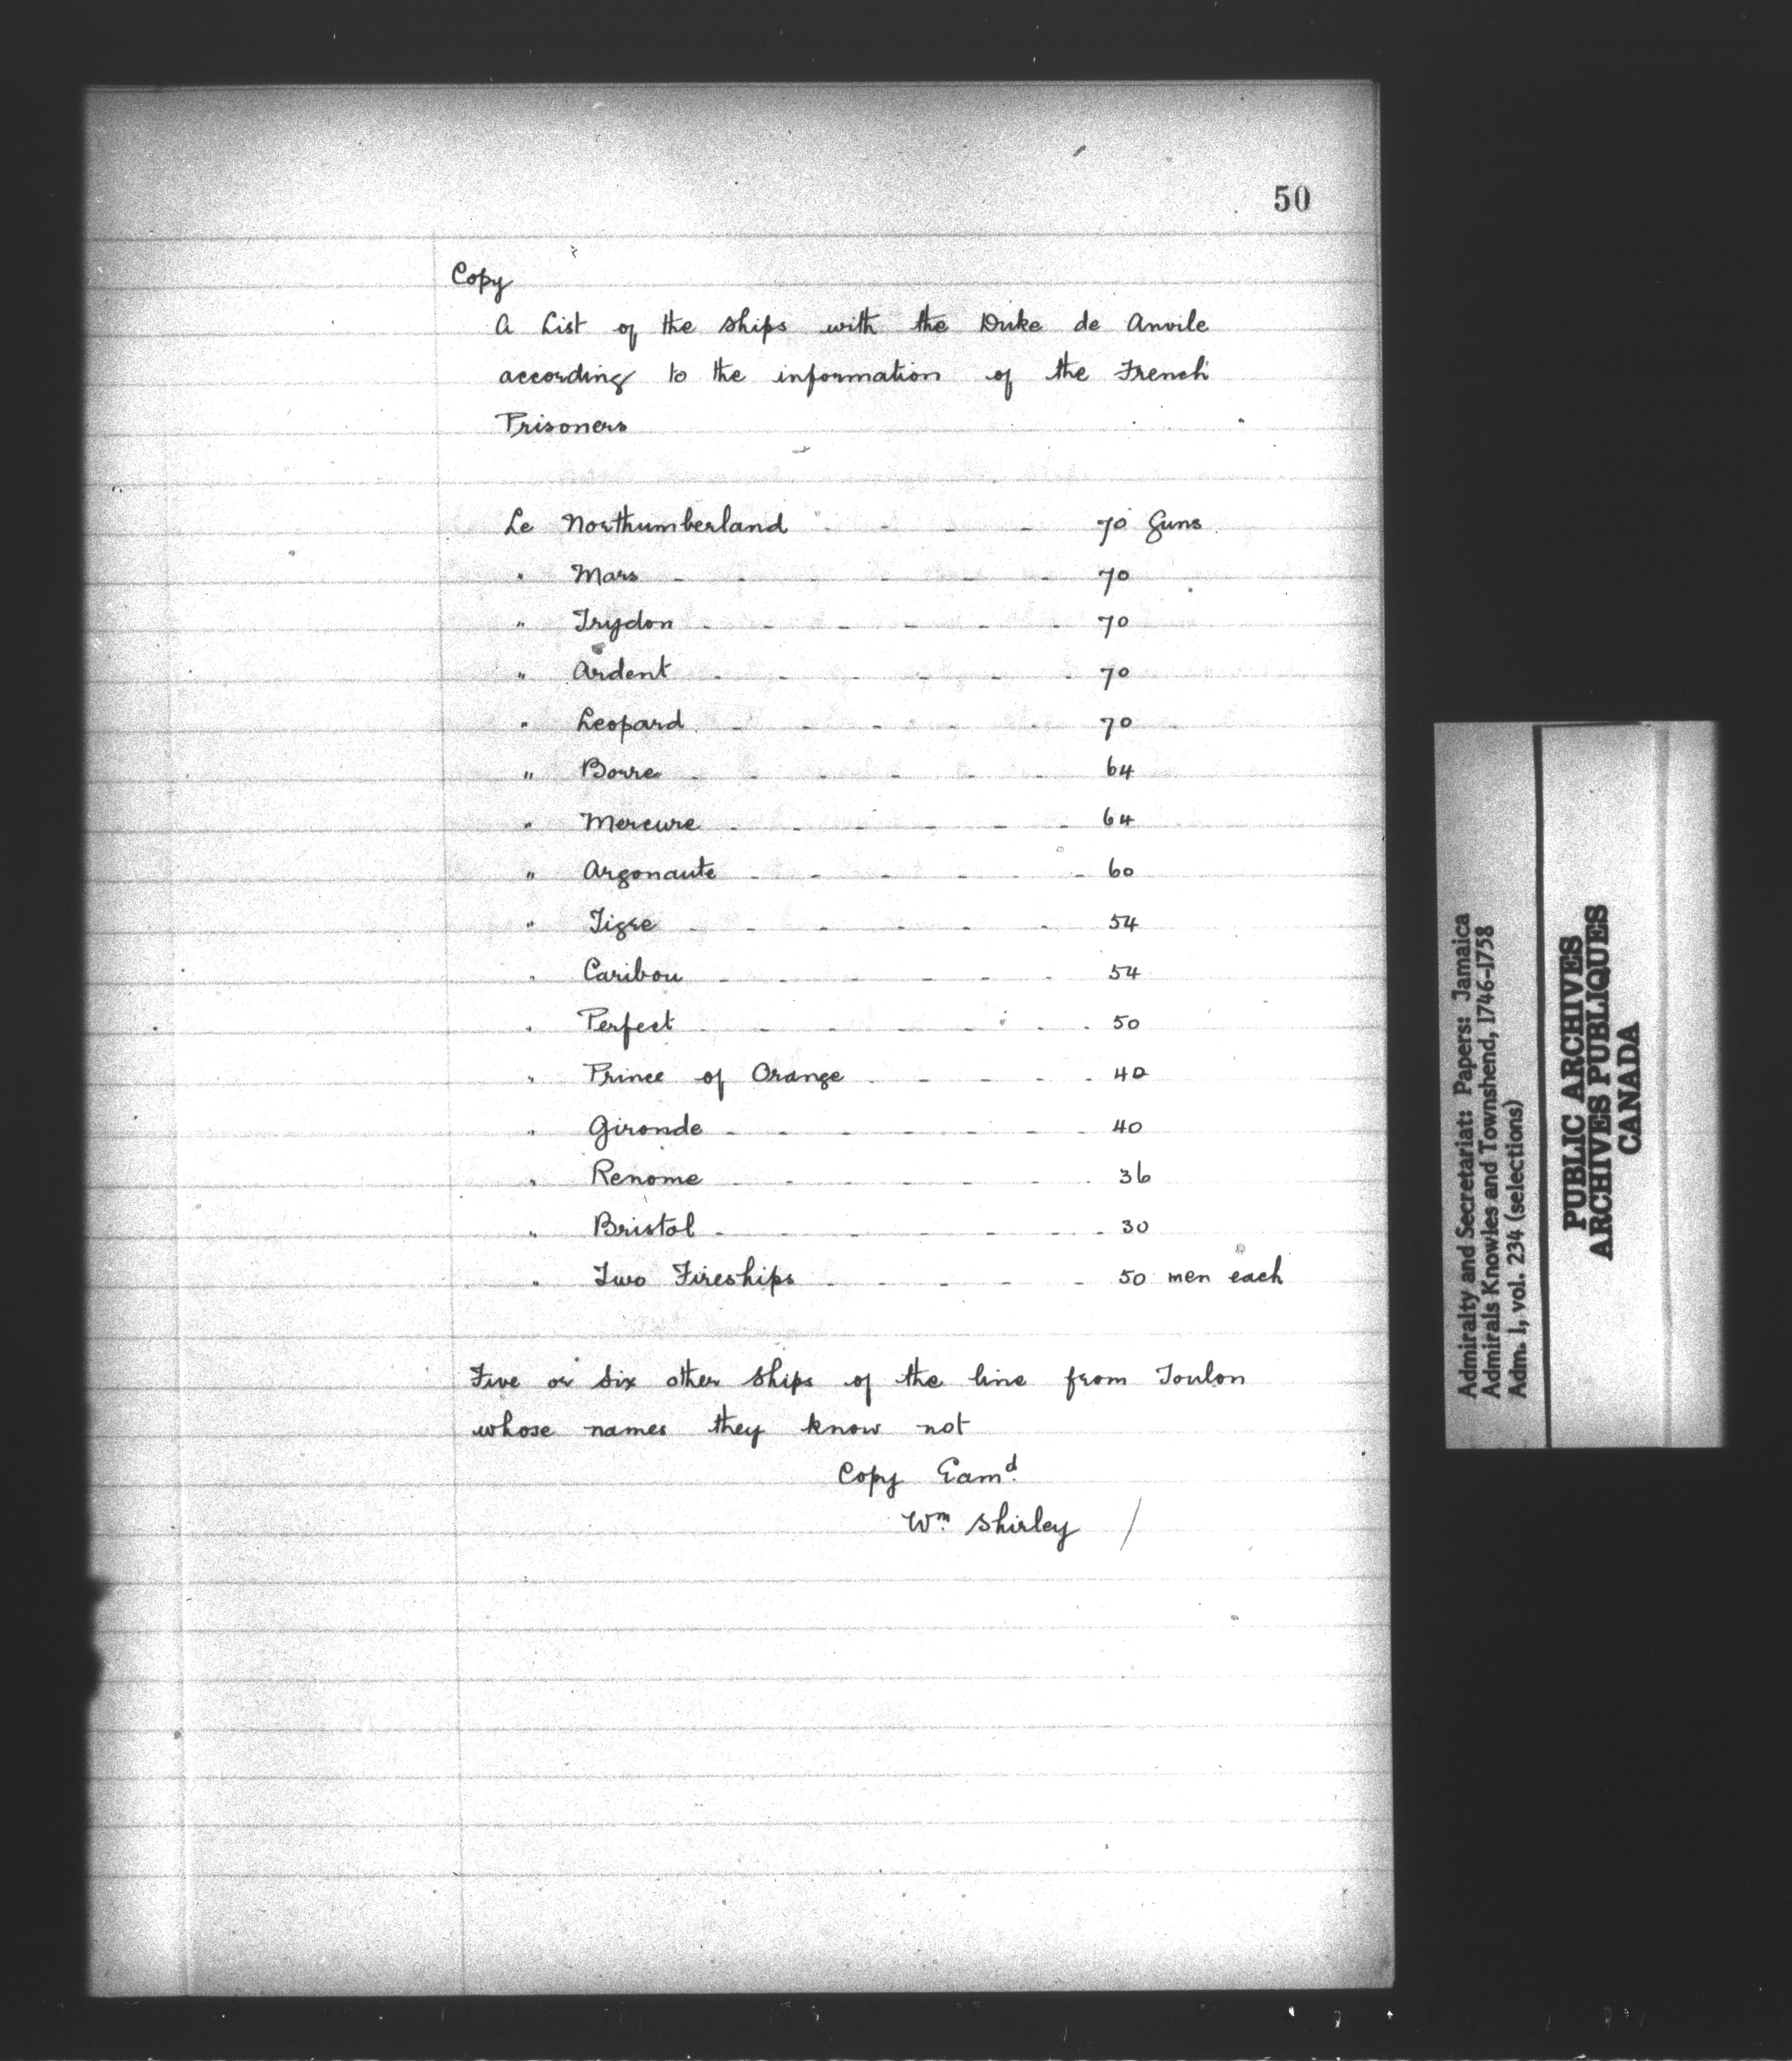 50
Copy
A List of the Ships with the Duke de Anvile
according to the information of the French
Prisoners
Le Northumberland - - - 70 Guns
" Mars - - - - - - 70
" Trydon - - - - - - 70
" Ardent - - - - - - 70
" Leopard - - - - - 70
" Borre - - - - - - 64
" Mercure - - - - - - 64
" Argonaute - - - - - 60
" Tigre - - - - - - 54
" Caribou - - - - - - 54
" Perfect - - - - - - 50
" Prince of Orange - - - - - 40
" Gironde - - - - - - 40
" Renome - - - - - - 36
" Bristol - - - - - - 30
" Two Fireships - - - - - 50 men each
Five or Six other Ships of the line from Toulon
whose names they know not
Copy Eamd.
Wm. Shirley /
Admiralty and Secretariat: Papers: Jamaica
Admirals Knowles and Townshend, 1746-1758
Adm. 1, vol. 234 (selections)
PUBLIC ARCHIVES
ARCHIVES PUBLIQUES
CANADA